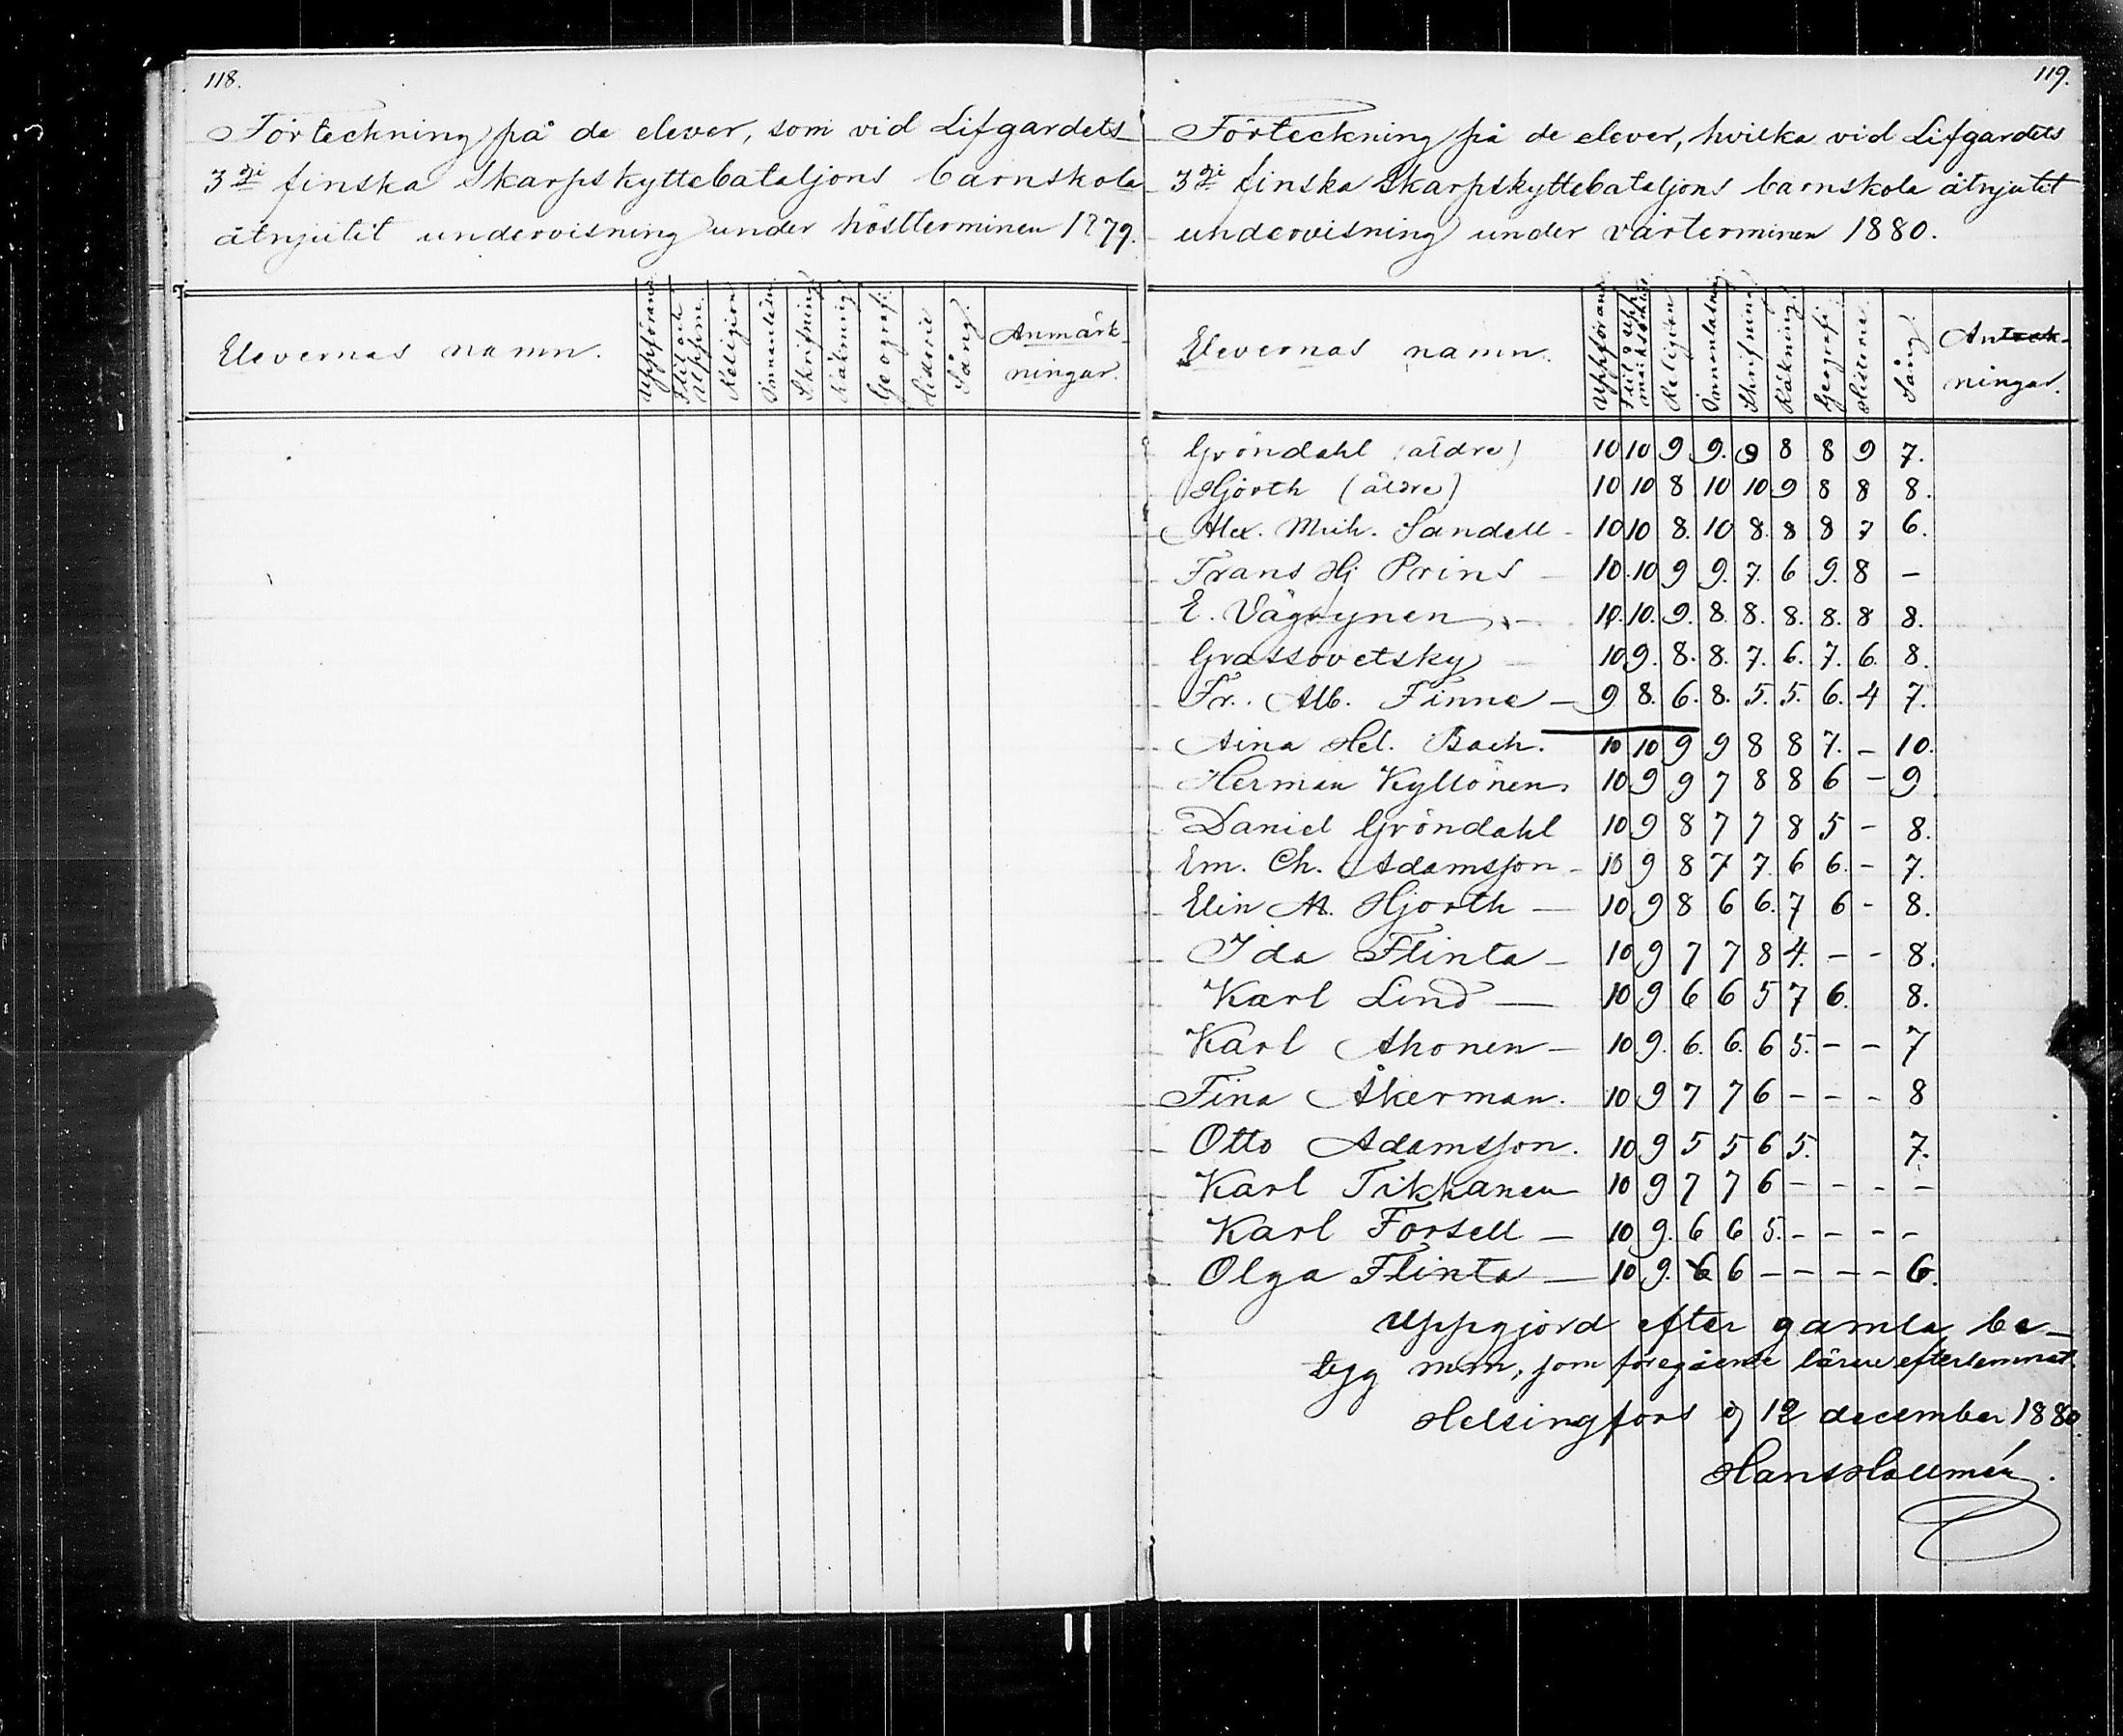 118.
Förteckning på de elever, som vid Lifgardets
3dje finska Skarpskyttebataljons barnskola
åtnjutit undervisning under höstterminen 1879.
Elevernas namn. Uppförande Flit och Uppm. Religion Innanläsn. Skrifning Räkning Geografi. Historie Sång. Anmärk-
ningar.
119.
Förteckning på de elever, hvilka vid Lifgardets
3dje finska Skarpskyttebataljons barnskola åtnjutit
undervisning under vårterminen 1880.
Elevernas namn. Uppförande Flit o upp- märksamhet Religion Innanläsning Skrifning Räkning. Geografi. Historie. Sång.
ningar.
Gröndahl (äldre) 10 10 9 9. 9 8 8 9 7.
Hjorth (äldre) 10 10 8 10 10 9 8 8 8.
Alex. Mich. Sandell - 10 10 8. 10 8. 8 8 7 6.
Frans Hj Prins - 10. 10 9 9. 7. 6 9. 8 -
E. Vägvynen - 10. 10. 9. 8. 8. 8. 8. 8 8.
Grassovetsky - 10 9. 8. 8. 7. 6. 7. 6. 8.
Fr. Alb. Finne - 9 8. 6. 8. 5. 5. 6. 4 7.
Aina Hel. Bach. 10 10 9 9 8 8 7. - 10.
Herman Kyllönen. 10 9 9 7 8 8 6 - 9
Daniel Gröndahl 10 9 8 7 7 8 5 - 8.
Em. Ch. Adamsson - 10 9 8 7 7. 6 6. - 7.
Elin M. Hjorth - 10 9 8 6 6. 7 6 - 8.
Ida Flinta - 10 9 7 7 8 4. - - 8.
Karl Lind - 10 9 6 6 5 7 6. 8.
Karl Ahonen - 10 9. 6. 6. 6 5. - - 7
Fina Åkerman. 10 9 7 7 6 - - - 8
Otto Adamsson. 10 9 5 5 6 5. 7.
Karl Tikkanen 10 9 7 7 6 - - - -
Karl Forsell - 10 9. 6 6 5. - - - -
Olga Flinta - 10 9. 6 6 - - - - 6.
Uppgjord efter gamla be-
tyg mm, som föregående lärare efterlemnat
Helsingfors d 12 december 1880.
Hans Hallmén.